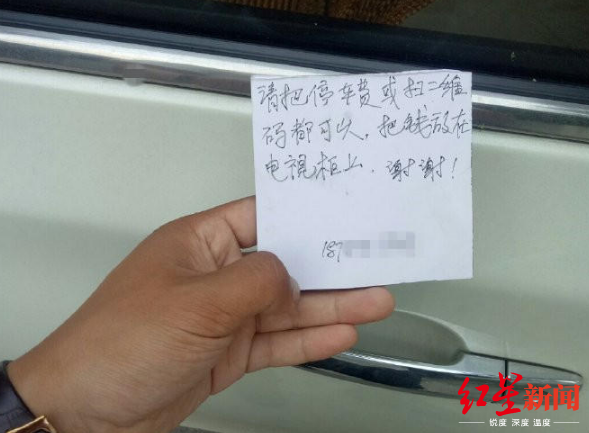 请把停车费或扫二维
码都可以，把钱放在
电视柜上．谢谢！
187
红星新闻
锐度 深度 温度